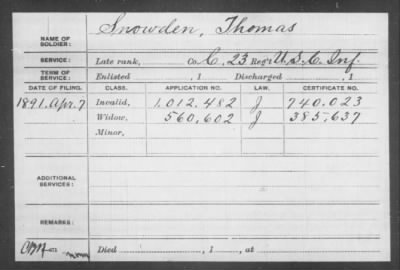 NAME OF SOLDIER: Snowden, Thomas
SERVICE: Late rank, Co. C, 23 Reg't U.S.C. Inf.
TERM OF SERVICE: Enlisted , 1 Discharged , 1
DATE OF FILING. CLASS. APPLICATION NO. LAW. CERTIFICATE NO.
1891, Apr. 7 Invalid, 1,012,482 J 740,023
Widow, 560,602 J 385,637
Minor,
ADDITIONAL SERVICES:
REMARKS:
Died , 1 , at